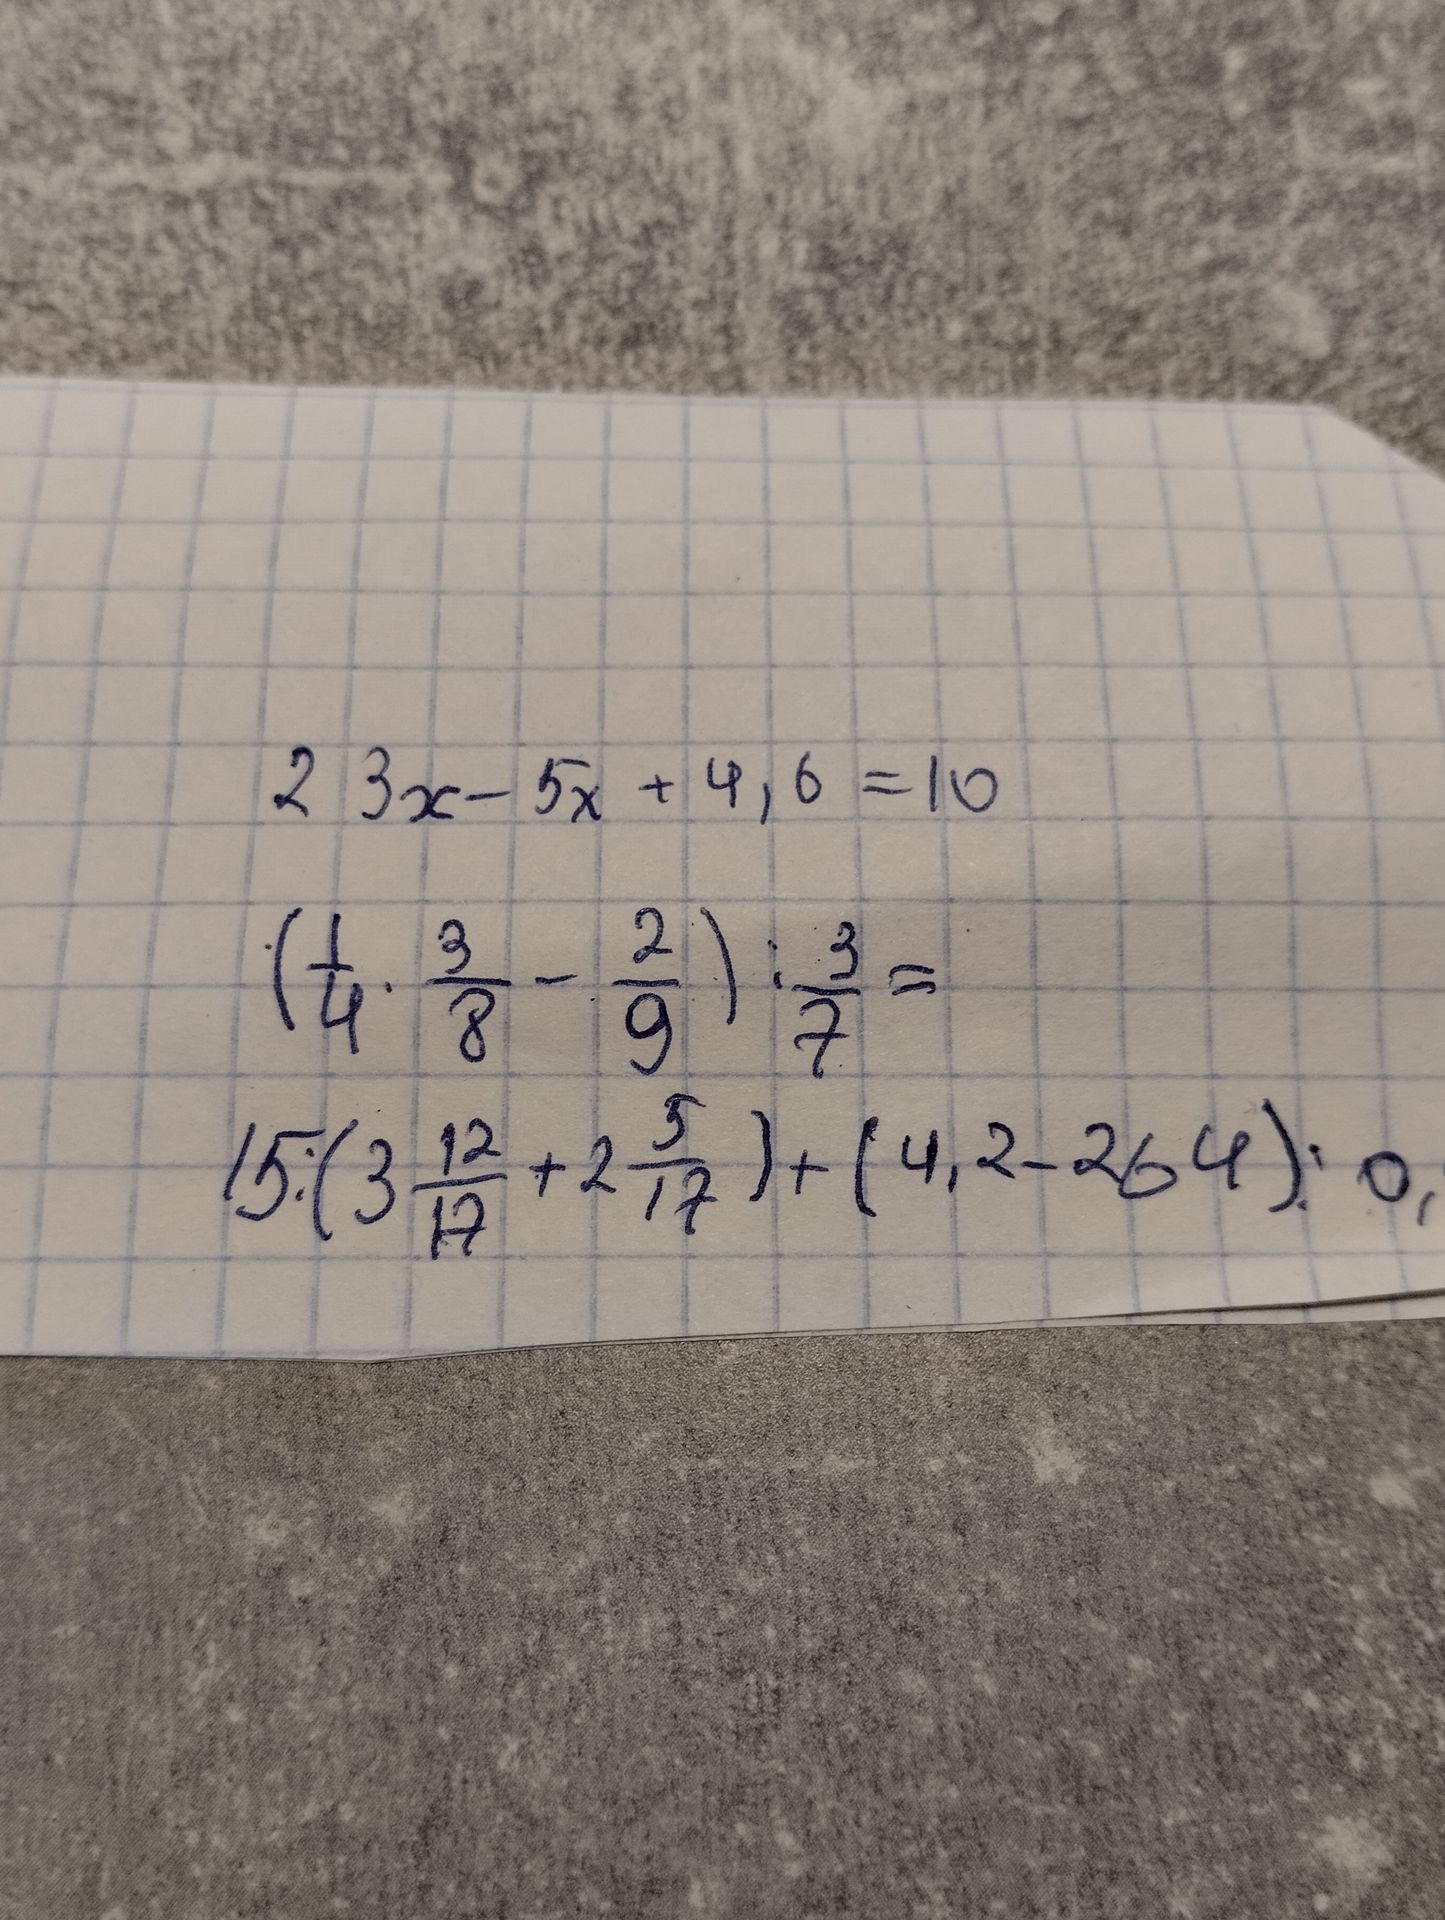 2 3x - 5x + 4,6 = 10
(1/4 · 3/8 - 2/9) : 3/7 =
15:(3 12/17 + 2 5/17) + (4,2 - 264) : 0,